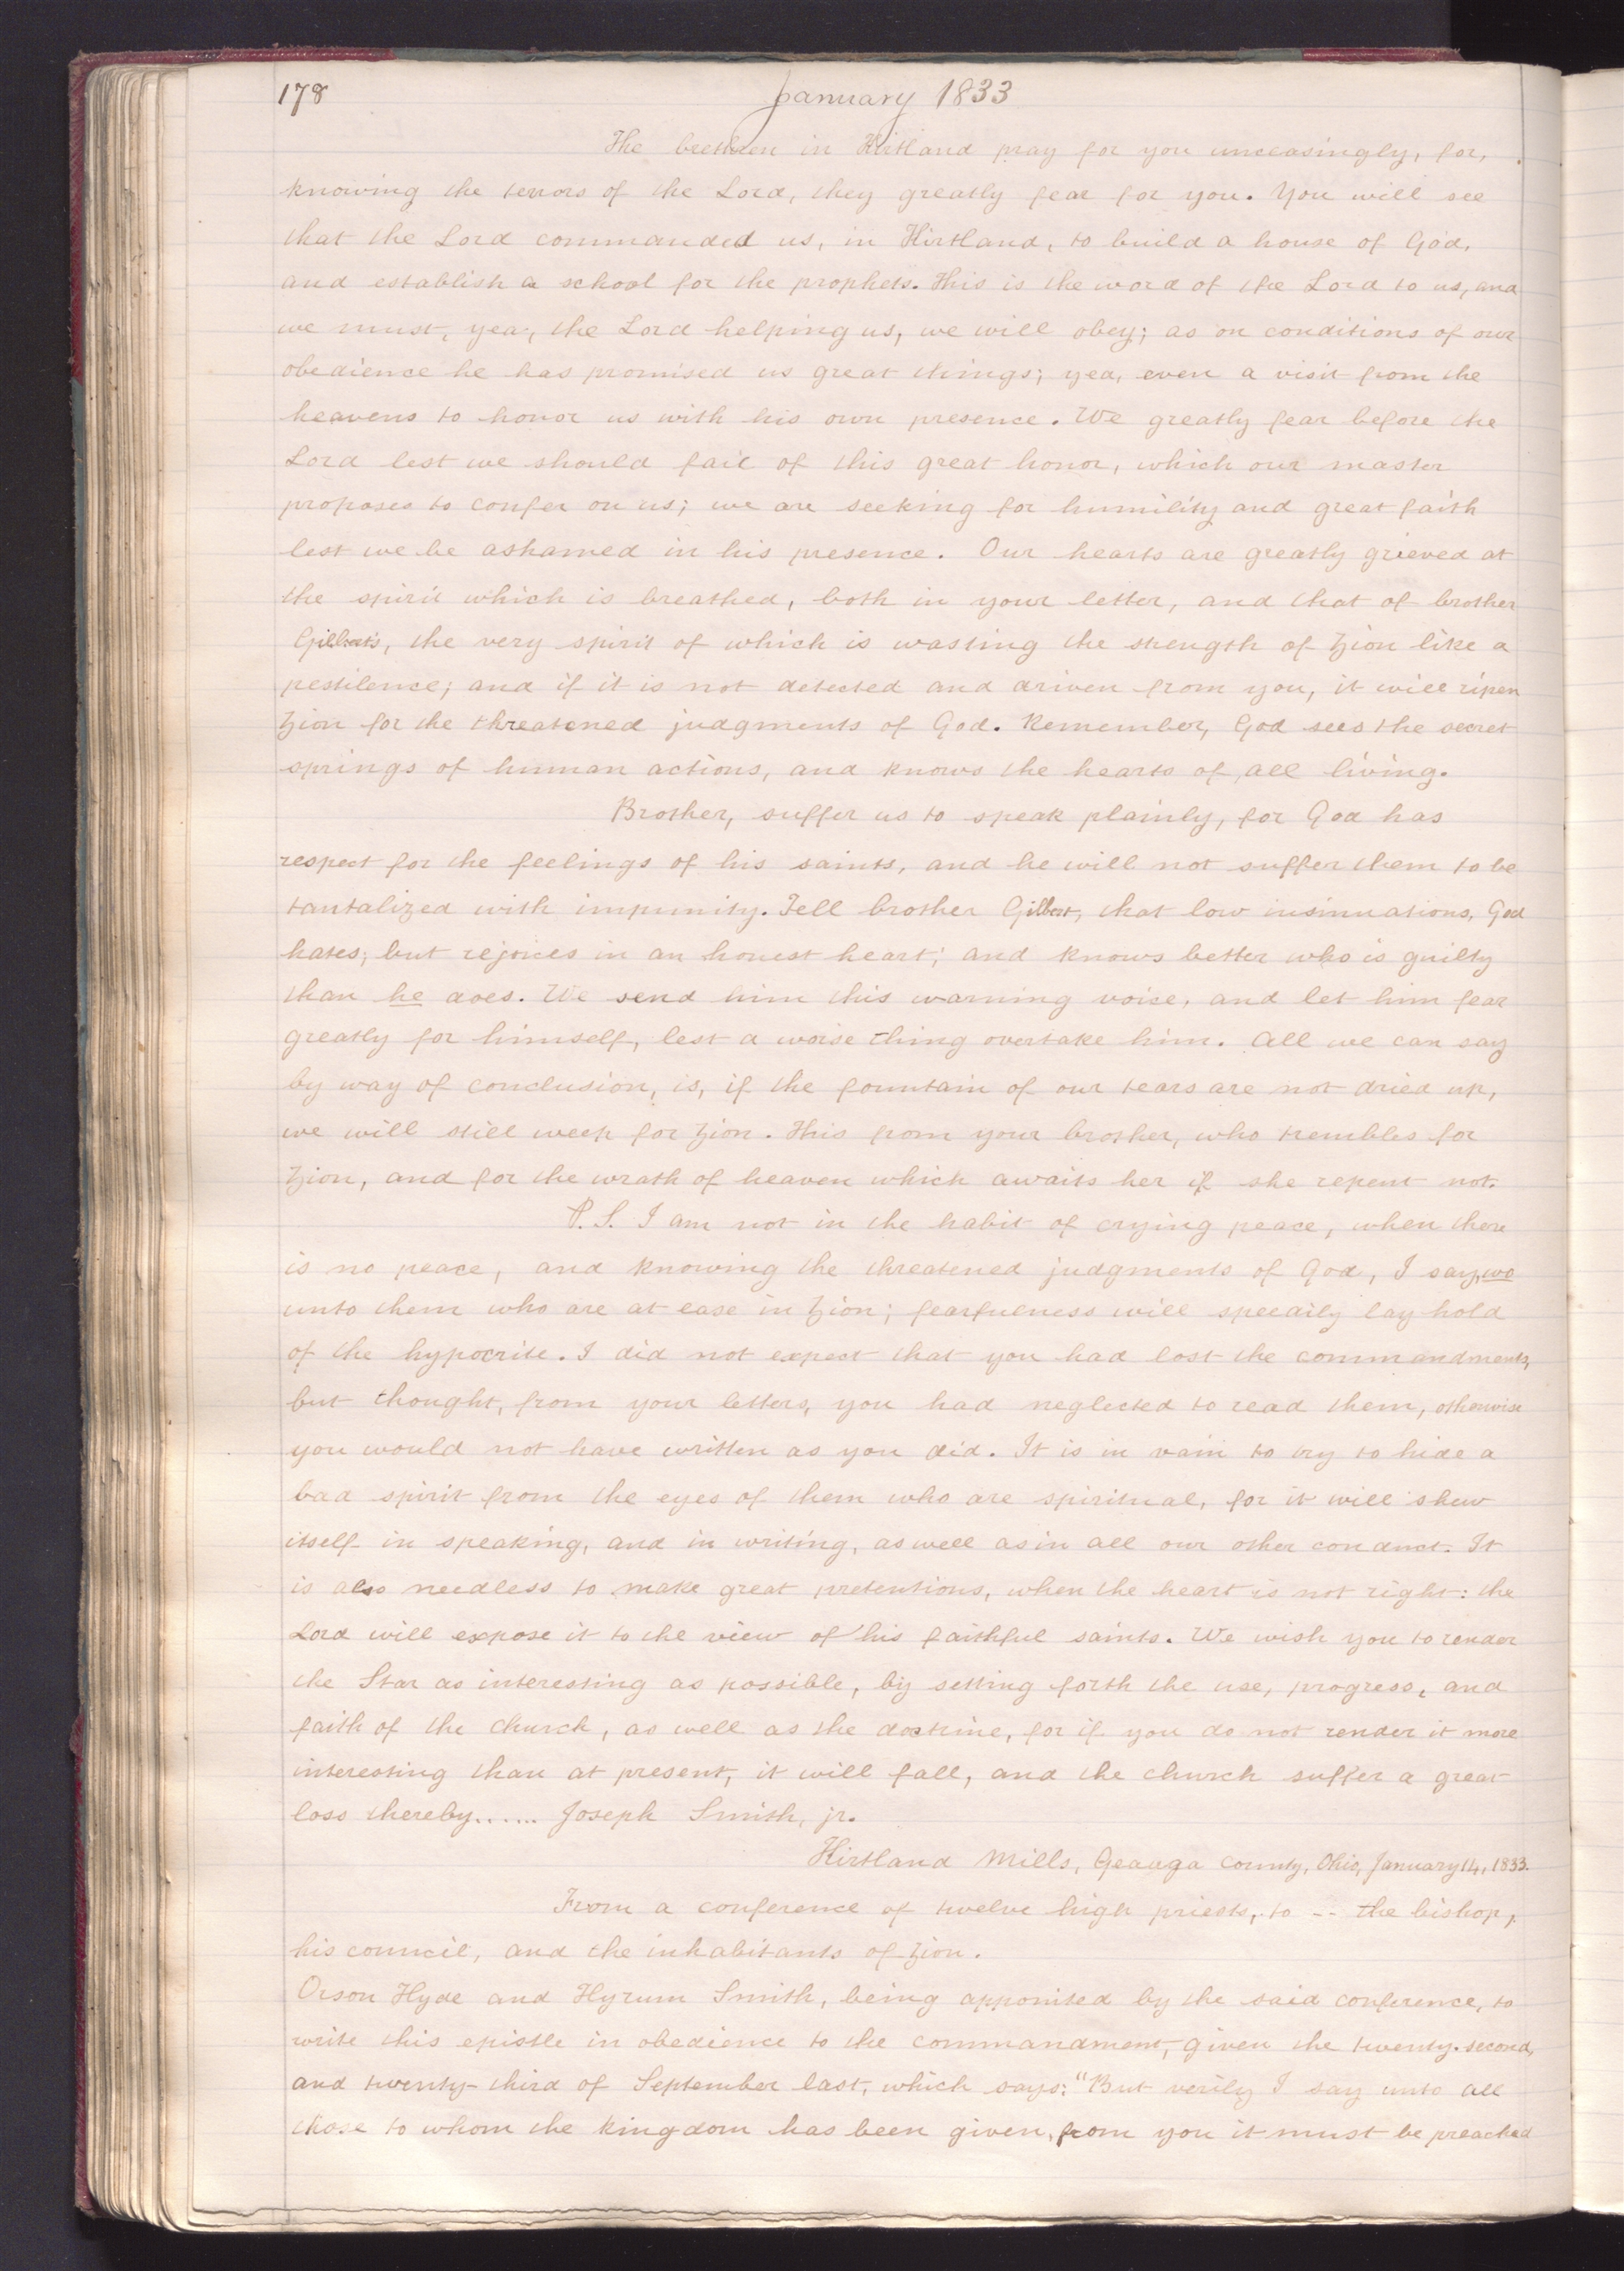 178
January 1833
The brethren in Kirtland pray for you unceasingly, for,
knowing the terrors of the Lord, they greatly fear for you. You will see
that the Lord commanded us, in Kirtland, to build a house of God,
and establish a school for the prophets. This is the word of the Lord to us, and
we must, yea, the Lord helping us, we will obey; as on conditions of our
obedience he has promised us great things; yea, even a visit from the
heavens to honor us with his own presence. We greatly fear before the
Lord lest we should fail of this great honor, which our master
proposes to confer on us; we are seeking for humility and great faith
lest we be ashamed in his presence. Our hearts are greatly grieved at
the spirit which is breathed, both in your letter, and that of brother
Gilbert's, the very spirit of which is wasting the strength of Zion like a
pestilence; and if it is not detected and driven from you, it will ripen
Zion for the threatened judgments of God. Remember, God sees the secret
springs of human actions, and knows the hearts of all living.
Brother, suffer us to speak plainly, for God has
respect for the feelings of his saints, and he will not suffer them to be
tantalized with impunity. Tell brother Gilbert, that low insinuations, God
hates; but rejoices in an honest heart; and knows better who is guilty
than he does. We send him this warning voice, and let him fear
greatly for himself, lest a worse thing overtake him. All we can say
by way of conclusion, is, if the fountain of our tears are not dried up,
we will still weep for Zion. This from your brother, who trembles for
Zion, and for the wrath of heaven which awaits her if she repent not.
P.S. I am not in the habit of crying peace, when there
is no peace, and knowing the threatened judgments of God, I say, wo
unto them who are at ease in Zion; fearfulness will speedily lay hold
of the hypocrite. I did not expect that you had lost the commandments,
but thought, from your letters, you had neglected to read them, otherwise
you would not have written as you did. It is in vain to try to hide a
bad spirit from the eyes of them who are spiritual, for it will shew
itself in speaking, and in writing, as well as in all our other conduct. It
is also needless to make great pretentions, when the heart is not right: the
Lord will expose it to the view of his faithful saints. We wish you to render
the Star as interesting as possible, by setting forth the use, progress, and
faith of the church, as well as the doctrine, for if you do not render it more
interesting than at present, it will fall, and the church suffer a great
loss thereby...... Joseph Smith, jr.
Kirtland Mills, Geauga County, Ohio, January 14, 1833.
From a conference of twelve high priests, to -- the bishop,
his council, and the inhabitants of Zion.
Orson Hyde and Hyrum Smith, being appointed by the said conference, to
write this epistle in obedience to the commandment, given the twenty-second,
and twenty-third of September last, which says: "But verily I say unto all
those to whom the kingdom has been given, from you it must be preached